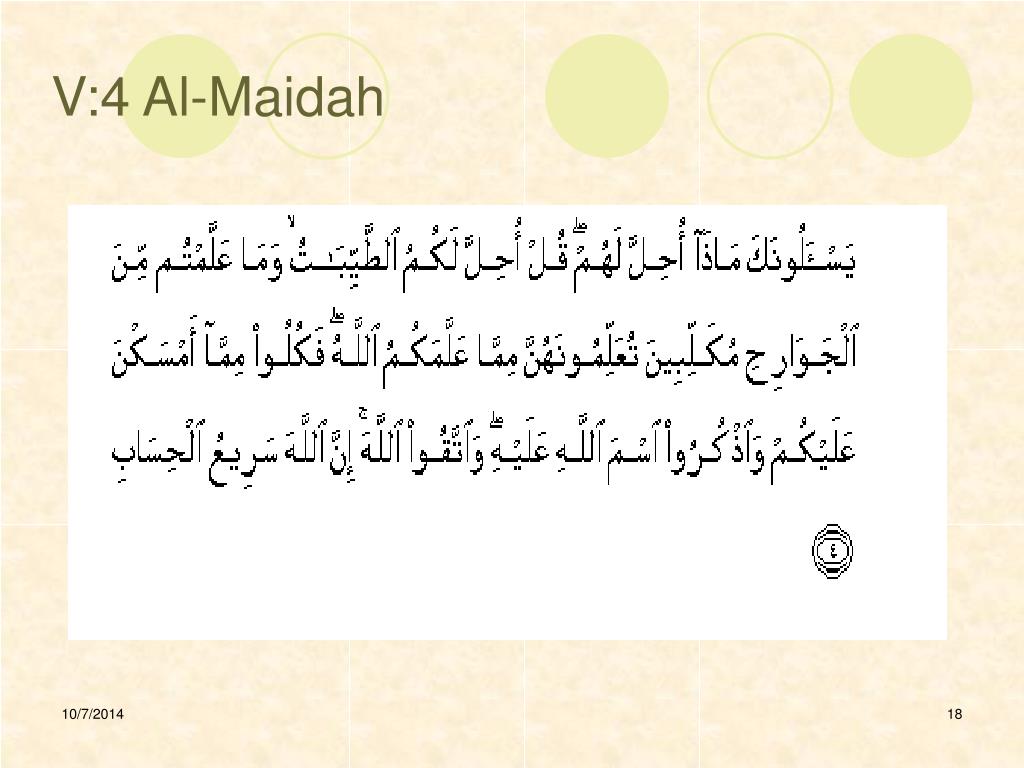 V:4 Al-Maidah
يَسْـَٔلُونَكَ مَاذَآ أُحِلَّ لَهُمْ ۖ قُلْ أُحِلَّ لَكُمُ ٱلطَّيِّبَـٰتُ ۙ وَمَا عَلَّمْتُم مِّنَ
ٱلْجَوَارِحِ مُكَلِّبِينَ تُعَلِّمُونَهُنَّ مِمَّا عَلَّمَكُمُ ٱللَّهُ ۖ فَكُلُوا۟ مِمَّآ أَمْسَكْنَ
عَلَيْكُمْ وَٱذْكُرُوا۟ ٱسْمَ ٱللَّهِ عَلَيْهِ ۖ وَٱتَّقُوا۟ ٱللَّهَ ۚ إِنَّ ٱللَّهَ سَرِيعُ ٱلْحِسَابِ
٤
10/7/2014 18